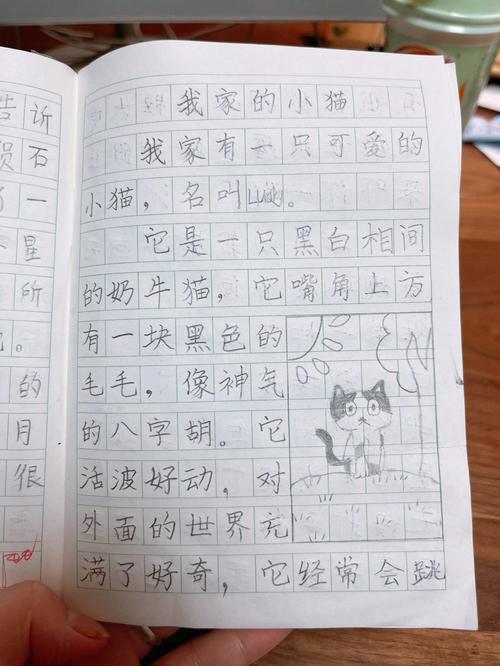 告诉
陨石
了一
个星
所
。
的
月
很
我家的小猫
我家有一只可爱的
小猫，名叫Lucky。
它是一只黑白相间
的奶牛猫，它嘴角上方
有一块黑色的
毛毛，像神气
的八字胡。它
活波好动，对
外面的世界充
满了好奇，它经常会跳